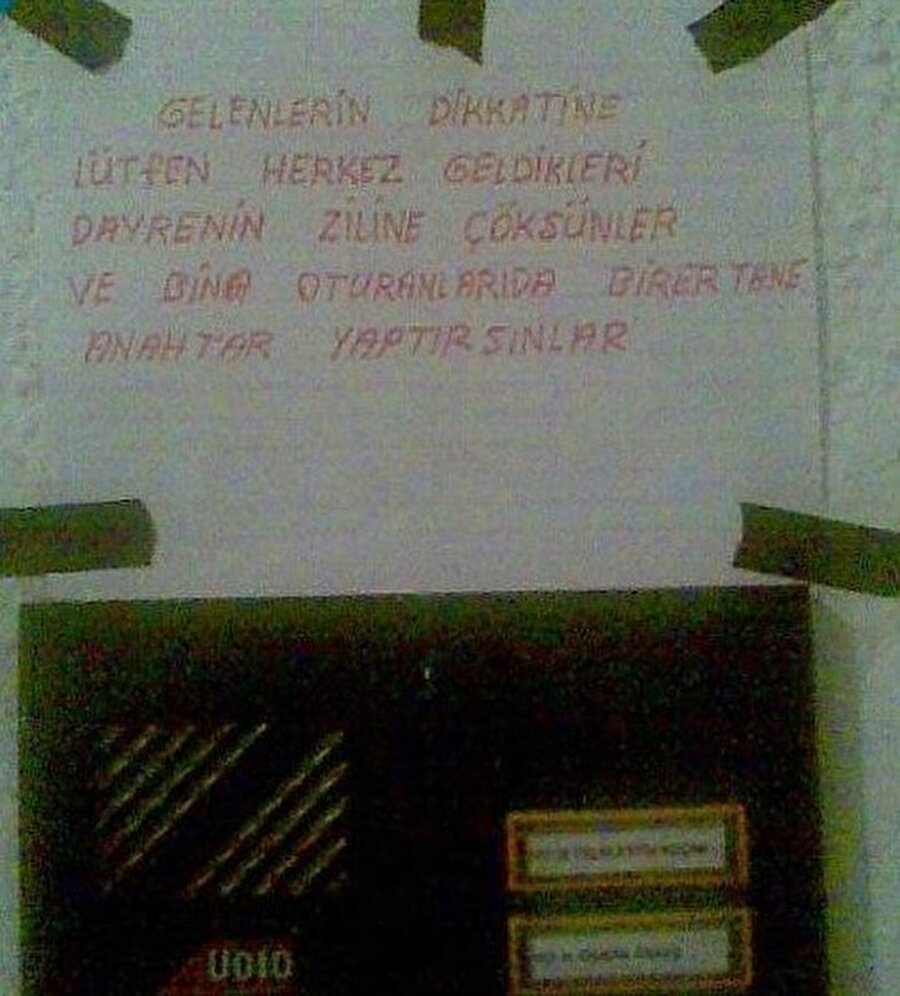 GELENLERİN DİKKATİNE
LÜTFEN HERKEZ GELDİKLERİ
DAYRENİN ZİLİNE ÇÖKSÜNLER
VE BİNA OTURANLARIDA BİRER TANE
ANAHTAR YAPTIRSINLAR